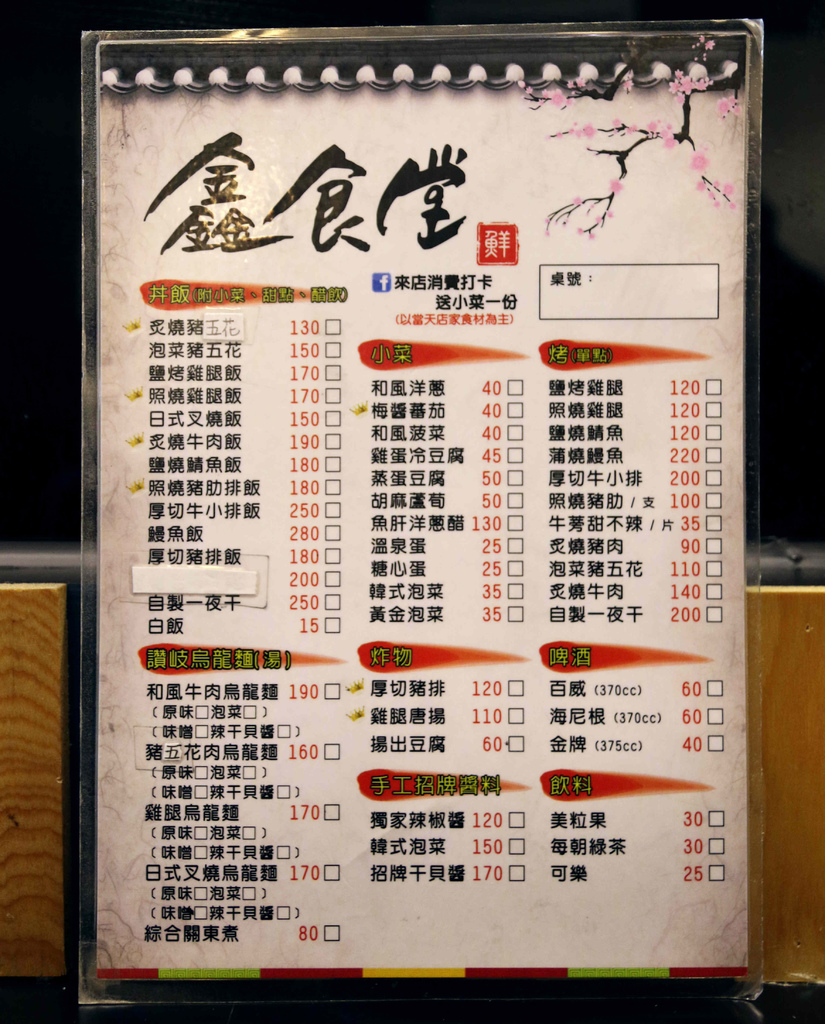 鑫食堂
鮮
來店消費打卡
送小菜一份
(以當天店家食材為主)
桌號：
丼飯(附小菜、甜點、醋飲)
炙燒豬五花 130□
泡菜豬五花 150□
鹽烤雞腿飯 170□
照燒雞腿飯 170□
日式叉燒飯 150□
炙燒牛肉飯 190□
鹽燒鯖魚飯 180□
照燒豬肋排飯 180□
厚切牛小排飯 250□
鰻魚飯 280□
厚切豬排飯 180□
200□
自製一夜干 250□
白飯 15□
讚岐烏龍麵(湯)
和風牛肉烏龍麵 190□
(原味□泡菜□)
(味噌□辣干貝醬□)
豬五花肉烏龍麵 160□
(原味□泡菜□)
(味噌□辣干貝醬□)
雞腿烏龍麵 170□
(原味□泡菜□)
(味噌□辣干貝醬□)
日式叉燒烏龍麵 170□
(原味□泡菜□)
(味噌□辣干貝醬□)
綜合關東煮 80□
小菜
和風洋蔥 40□
梅醬蕃茄 40□
和風菠菜 40□
雞蛋冷豆腐 45□
蒸蛋豆腐 50□
胡麻蘆筍 50□
魚肝洋蔥醋 130□
溫泉蛋 25□
糖心蛋 25□
韓式泡菜 35□
黃金泡菜 35□
炸物
厚切豬排 120□
雞腿唐揚 110□
揚出豆腐 60□
手工招牌醬料
獨家辣椒醬 120□
韓式泡菜 150□
招牌干貝醬 170□
烤(單點)
鹽烤雞腿 120□
照燒雞腿 120□
鹽燒鯖魚 120□
蒲燒鰻魚 220□
厚切牛小排 200□
照燒豬肋/支 100□
牛蒡甜不辣/片 35□
炙燒豬肉 90□
泡菜豬五花 110□
炙燒牛肉 140□
自製一夜干 200□
啤酒
百威(370cc) 60□
海尼根(370cc) 60□
金牌(375cc) 40□
飲料
美粒果 30□
每朝綠茶 30□
可樂 25□